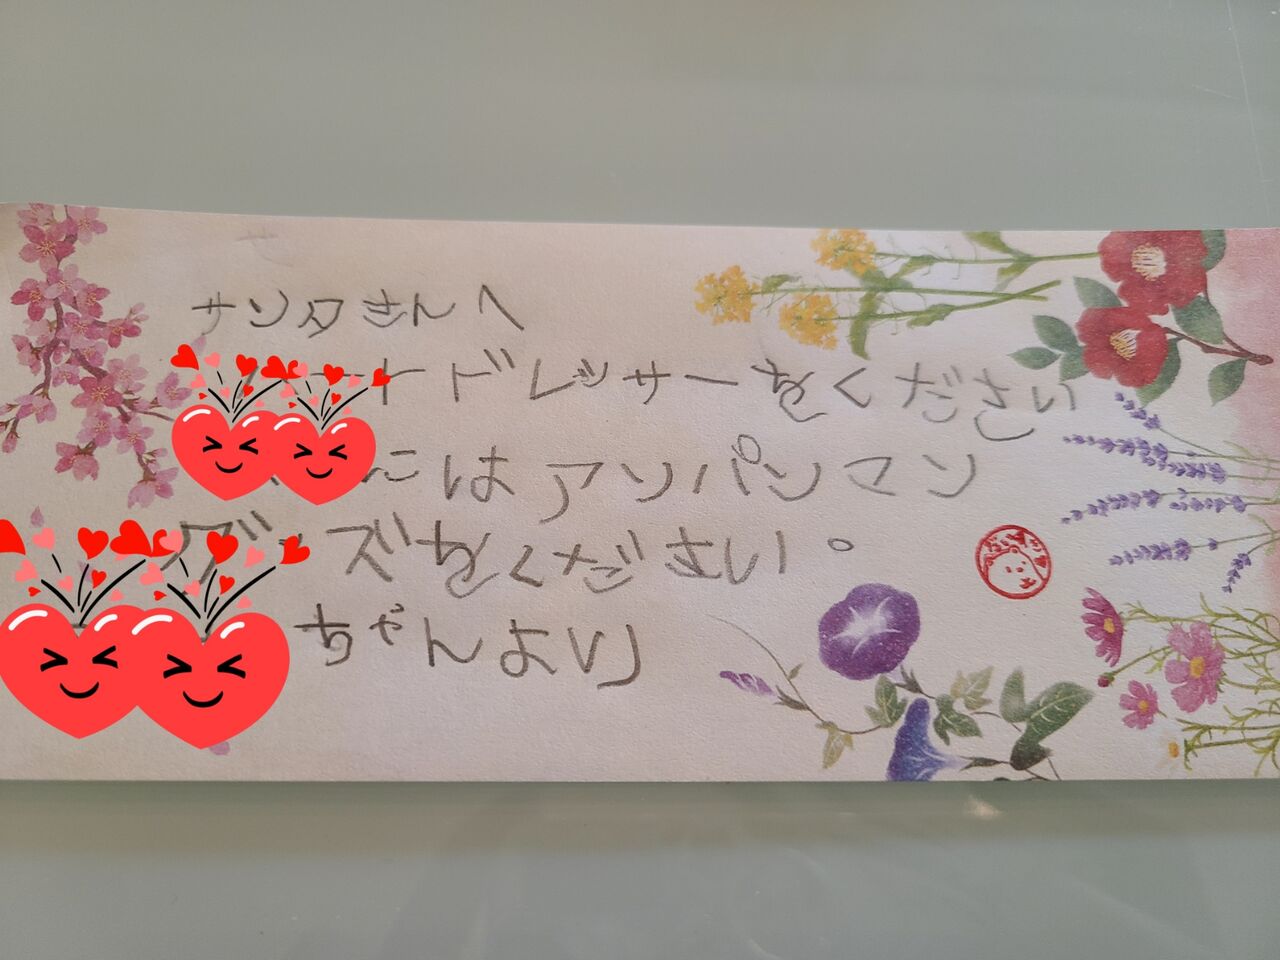 サンタさんへ
ハートドレッサーをください
にはアンパンマン
グッズをください。
ちゃんより